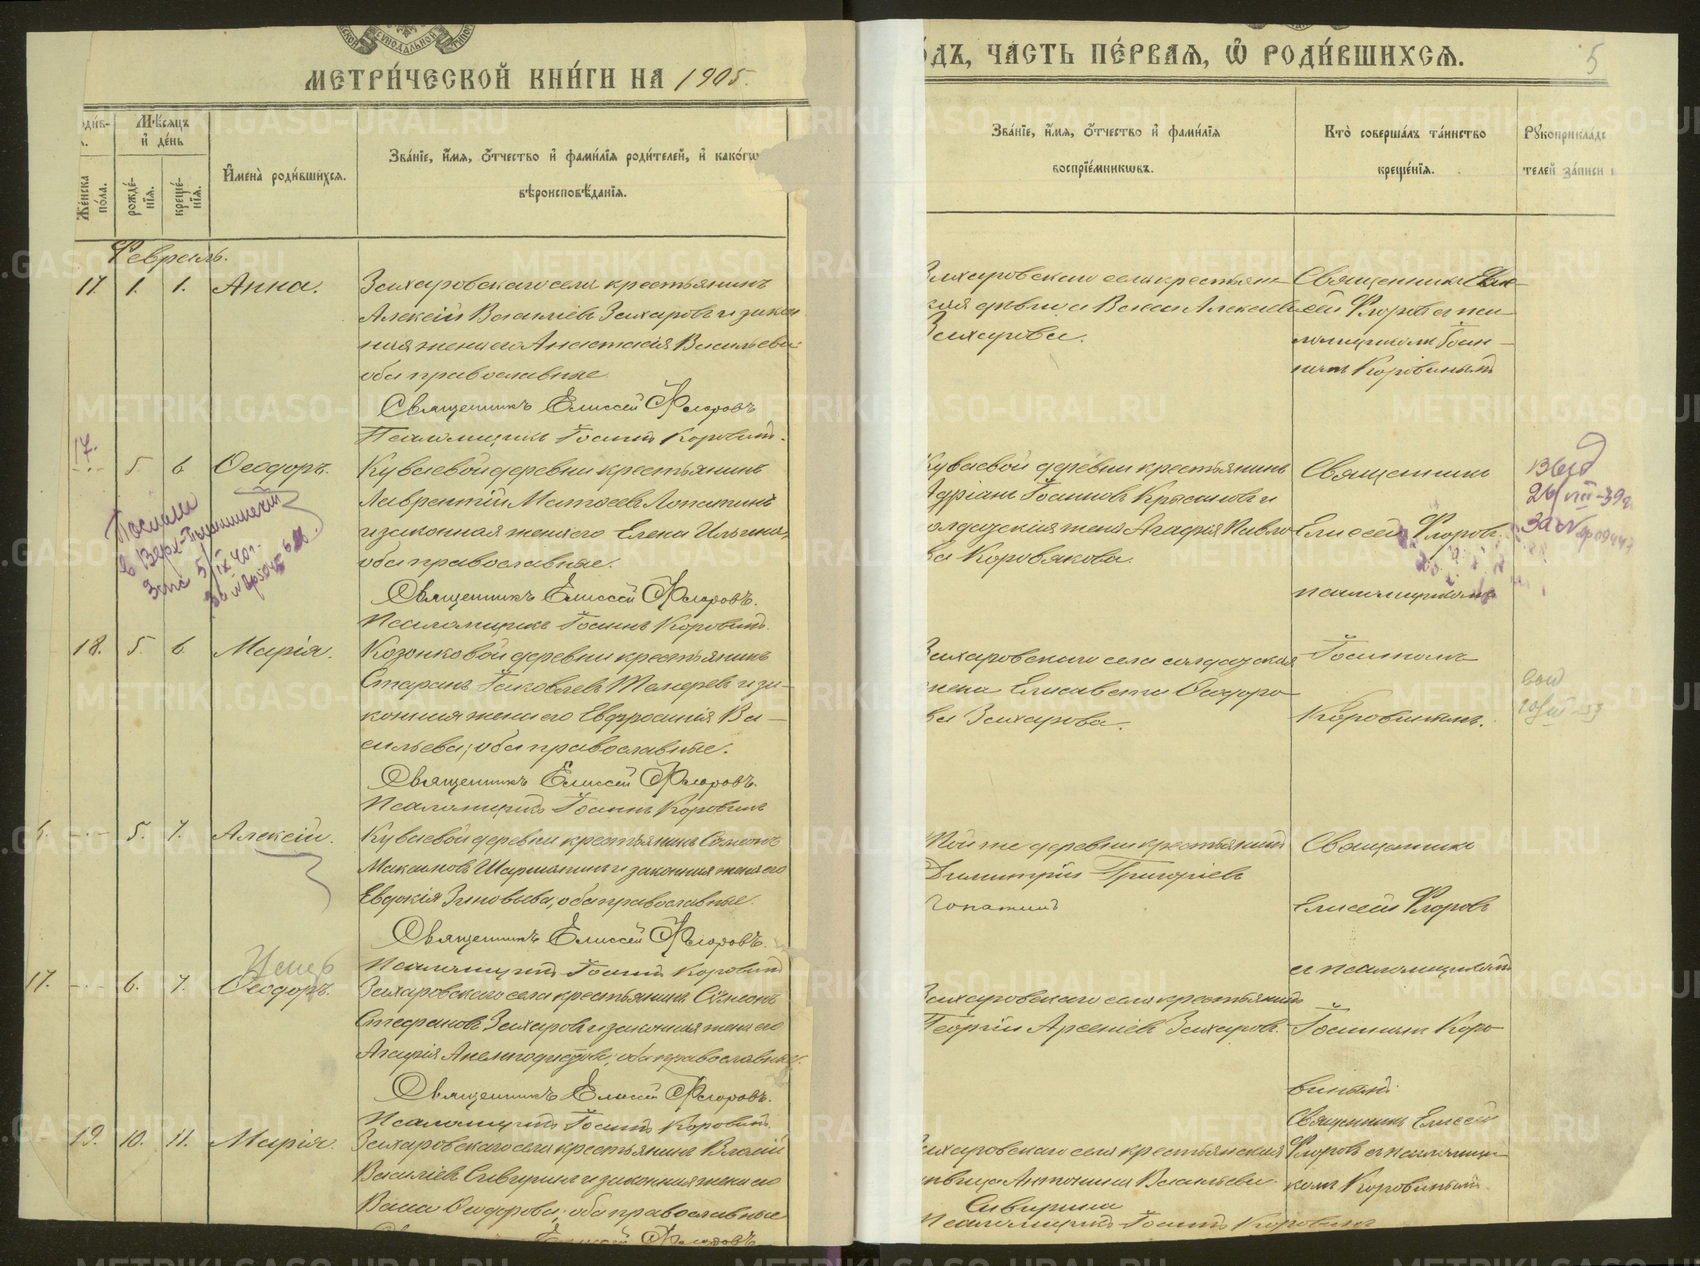 МЕТРИ́ЧЕСКОЙ КНИ́ГИ НА 1905.
ЧА́СТЬ ПЕ́РВАЯ, Ѽ РОДИ́ВШИХСЯ.
5
Мѣ́сяцъ и҆ де́нь
Же́нска по́ла.
рожде́нїя.
креще́нїя.
И҆мена̀ роди́вшихся.
Зва́нїе, и҆́мя, ѻ҆́тчество и҆ фами́лїя роди́телей, и҆ како́гѡ
вѣроисповѣ́данїя.
Зва́нїе, и҆́мя, ѻ҆́тчество и҆ фами́лїя
воспрїе́мникѡвъ.
Кто̀ соверша́лъ та́инство
креще́нїя.
Рꙋкоприкла́дс
телей за́писи
Февраль.
17. 1. 1. Анна.
Захаровскаго села крестьянинъ
Алексій Василіевъ Захаровъ и закон
ная жена его Анастасія Васильева
оба православные.
Священникъ Елиссей Флоровъ
Псаломщикъ Іоаннъ Коровинъ.
Захаровскаго села крестьян-
ская дѣвица Васса Алексіева
Захарова.
Священникъ Ели-
сей Флоровъ съ пса-
ломщикомъ Іоан-
номъ Коровинымъ
17.
5. 6. Ѳеодоръ.
Куваевой деревни крестьянинъ
Лаврентій Матѳеевъ Лопатинъ
и законная жена его Елена Ильина,
оба православные.
Священникъ Елиссей Флоровъ.
Псаломщикъ Іоаннъ Коровинъ.
Куваевой деревни крестьянинъ
Адріанъ Іоанновъ Крысановъ и
солдатская жена Агафія Павло-
ва Коровякова.
Священникъ
Елиссей Флоровъ
псаломщикомъ
Выд
26/VIII-39г.
За №
Послана
в Верх-Пышминский
Загс 5/IX 40г.
18. 5. 6. Марія.
Козонковой деревни крестьянинъ
Стефанъ Іаковлевъ Темеревъ и за-
конная жена его Евфросинія Ва-
сильева; оба православные.
Священникъ Елиссей Флоровъ.
Псаломщикъ Іоаннъ Коровинъ
Захаровскаго села солдатская
жена Елисавета Ѳеодоро-
ва Захарова.
Іоанномъ
Коровинымъ.
5. 7. Алексій.
Куваевой деревни крестьянинъ Симеонъ
Максимовъ и законная жена его
Евдокія Зиновьева, оба православные.
Священникъ Елиссей Флоровъ.
Псаломщикъ Іоаннъ Коровинъ
Той же деревни крестьянинъ
Димитрій Григоріевъ
Лопатинъ
Священникъ
Елиссей Флоровъ
съ псаломщикомъ
17. 6. 7. Ѳеодоръ.
Захаровскаго села крестьянинъ Симеонъ
Стефановъ Захаровъ и законная жена его
Агафія Анемподистова, оба православные.
Священникъ Елиссей Флоровъ.
Псаломщикъ Іоаннъ Коровинъ.
Захаровскаго села крестьянинъ
Георгій Арсеніевъ Захаровъ.
Іоанномъ Коро
винымъ.
19. 10. 11. Марія.
Захаровскаго села крестьянинъ Власій
Василіевъ Сивирина и законная жена его
Васса Ѳеодорова; оба православные
Елиссей Флоровъ
Захаровскаго села крестьянская
дѣвица Антонина Васильева
Сивирина
Псаломщикъ Іоаннъ Коровинъ
Священникъ Елиссей
Флоровъ съ псаломщи-
комъ Коровинымъ.
METRIKI.GASO-URAL.RU